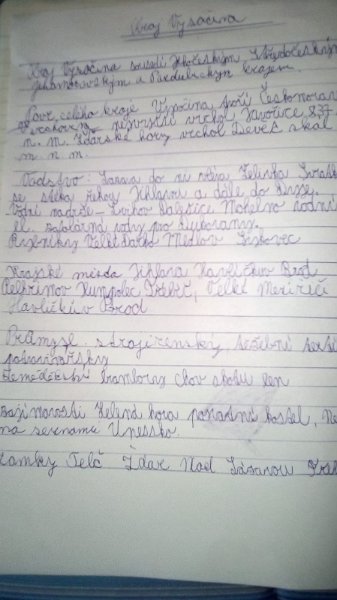 Kraj Vysočina
Kraj Vysočina sousedí Jihočeským, Středočeským
Jihomoravským a Pardubickým krajem.
celého kraje Vysočina tvoří Českomorav
nejvyšší vrchol Javořice 837
m. n. m. Žďárské hory vrchol Devět skal
m n m.
Vodstvo: Sázava do ní Želivka
se řekou Jihlavou a dále do
nádrže - Dalešice Mohelno vodní
el. vody pro
Rybníky Velké Dářko Medlov
Krajské město Jihlava Havlíčkův Brod
Pelhřimov Humpolec Třebíč, Velké Meziříčí
Havlíčkův Brod
Průmysl strojírenský,
potravinářský
Zemědělství brambory chov skotu len
zajímavosti Zelená hora kostel,
na seznamu Unessko.
zámky Telč Žďár Nad Sázavou